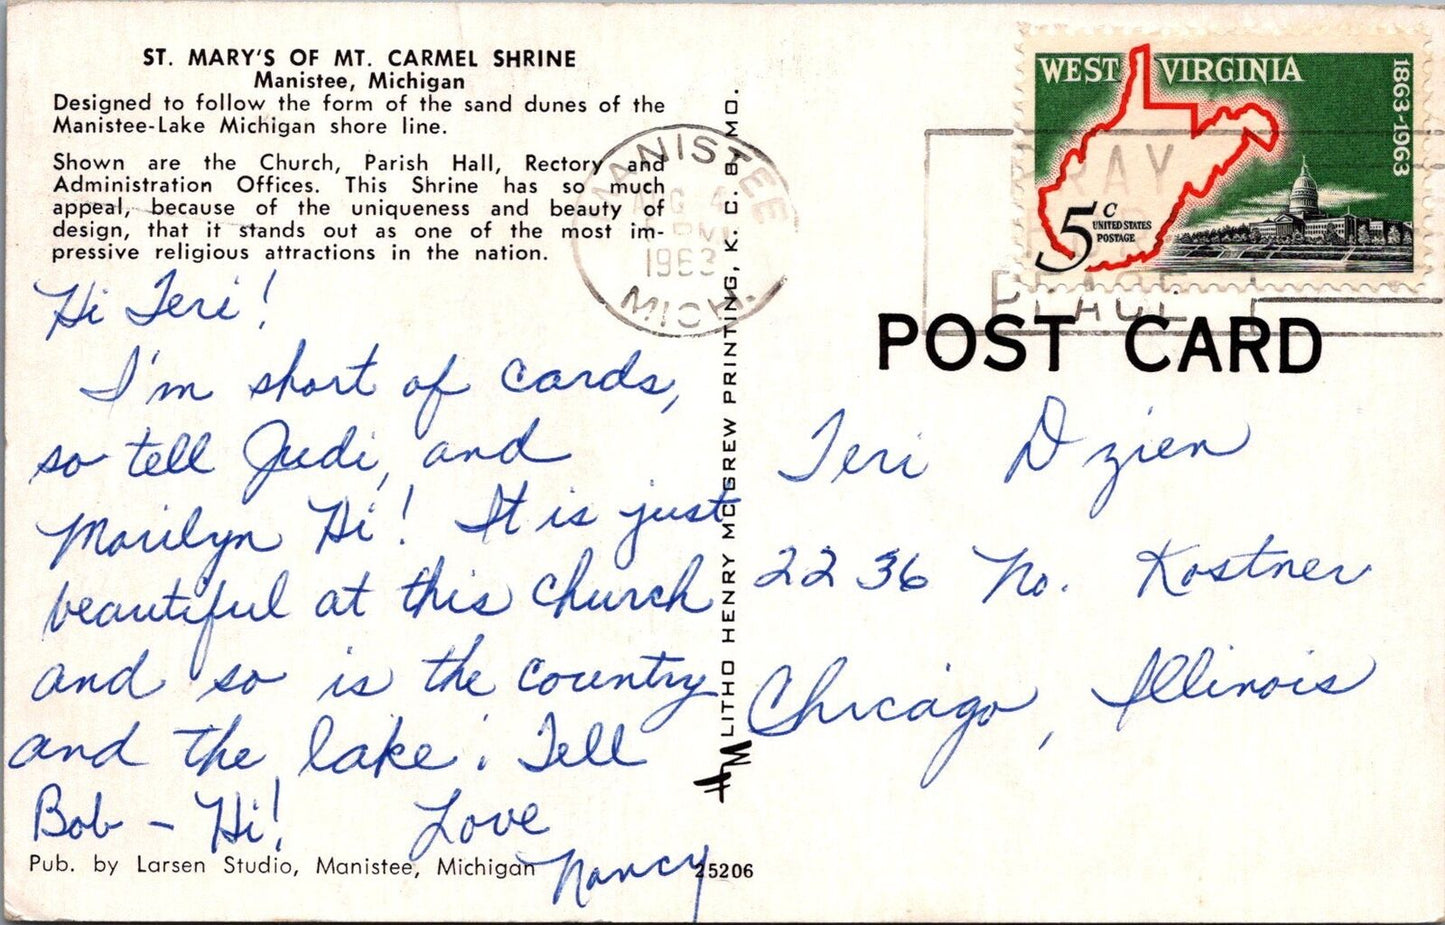 ST. MARY'S OF MT. CARMEL SHRINE
Manistee, Michigan
Designed to follow the form of the sand dunes of the
Manistee-Lake Michigan shore line.
Shown are the Church, Parish Hall, Rectory and
Administration Offices. This Shrine has so much
appeal, because of the uniqueness and beauty of
design, that it stands out as one of the most im-
pressive religious attractions in the nation.
Hi Teri!
I'm short of cards,
so tell Judi, and
Marilyn Hi! It is just
beautiful at this church
and so is the country
and the lake. Tell
Bob - Hi! Love
Nancy
Pub. by Larsen Studio, Manistee, Michigan
25206
LITHO HENRY MCGREW PRINTING, K. C. 8, MO.
MANISTEE
AUG 4
PM
1963
MICH.
PRAY
FOR
PEACE
WEST VIRGINIA
1863-1963
5c
UNITED STATES
POSTAGE
POST CARD
Teri Dzien
2236 No. Kostner
Chicago, Illinois